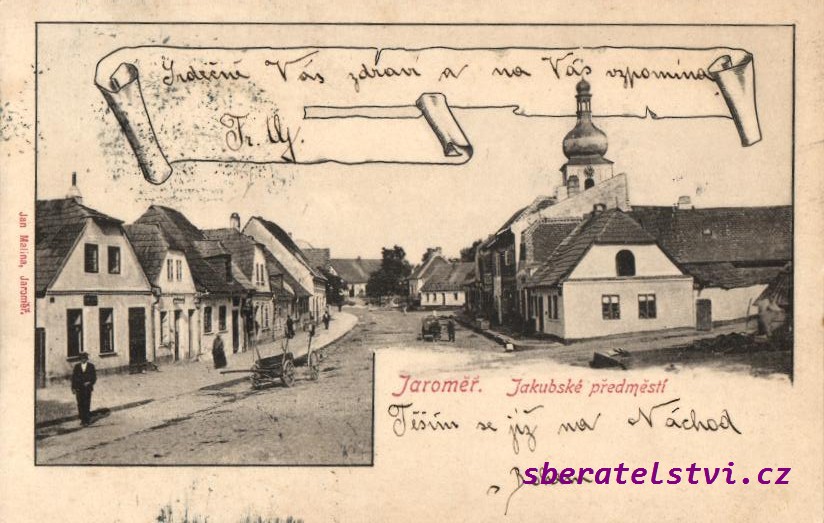 Srdečně Vás zdraví a na Vás vzpomíná
Fr.
Jan Malina, Jaroměř.
Jaroměř. Jakubské předměstí
Těším se již na Náchod
sberatelstvi.cz